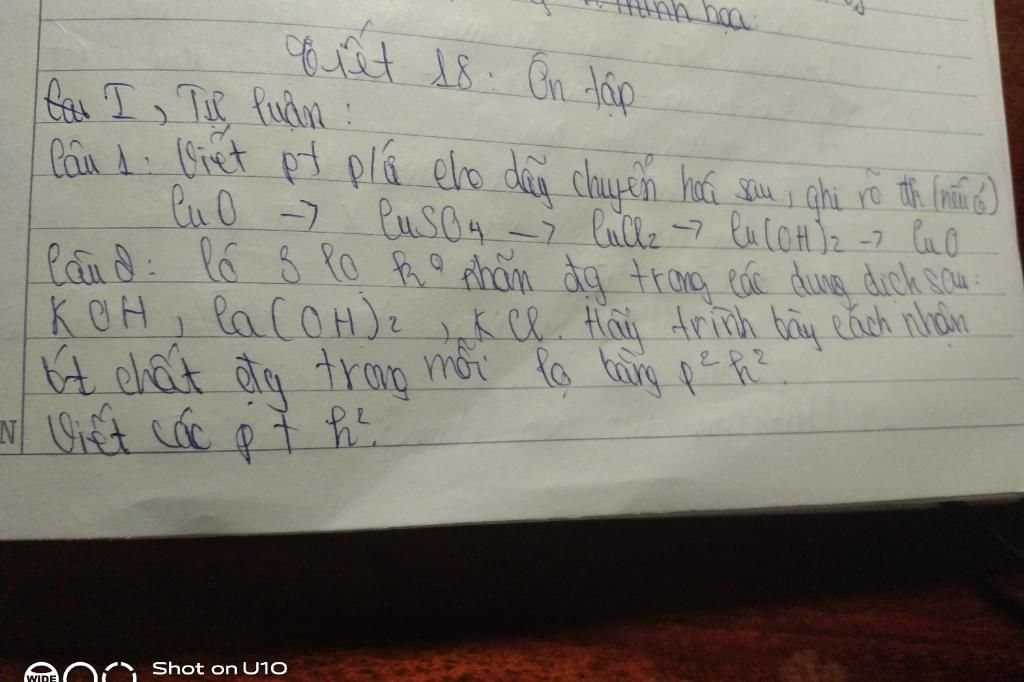 minh họa.
Tiết 18: Ôn tập
I, Tự luận:
Câu 1: Viết pt p/ứ cho dãy chuyển hoá sau, ghi rõ đk (nếu có)
CuO -> CuSO4 -> CuCl2 -> Cu(OH)2 -> CuO
Câu 2: Có 3 lọ k° nhãn đựg trong các dung dịch sau:
KOH, Ca(OH)2, KCl. Hãy trình bày cách nhận
bt chất đựg trong mỗi lọ bằng p² h².
Viết các pt h².
N
Shot on U10
WIDE